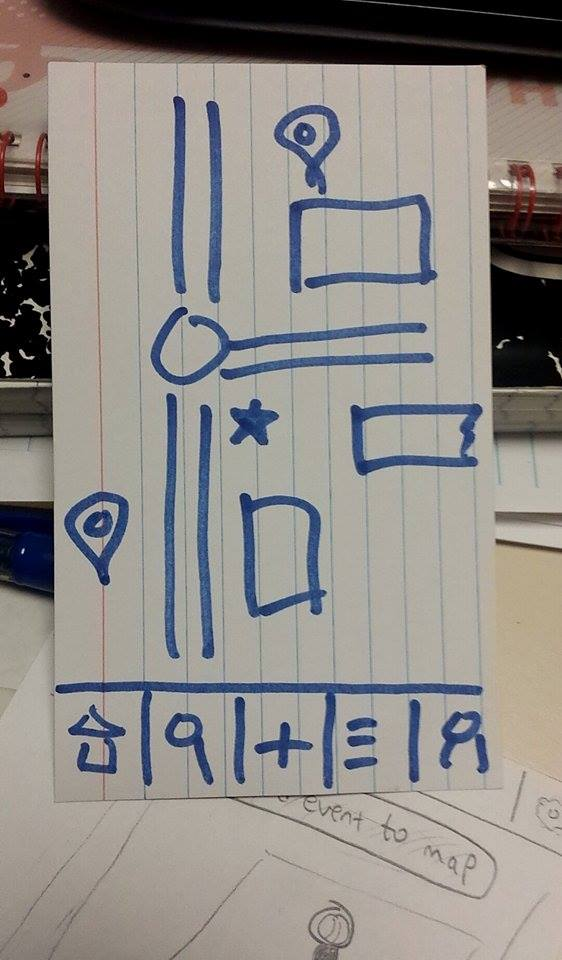 event to map